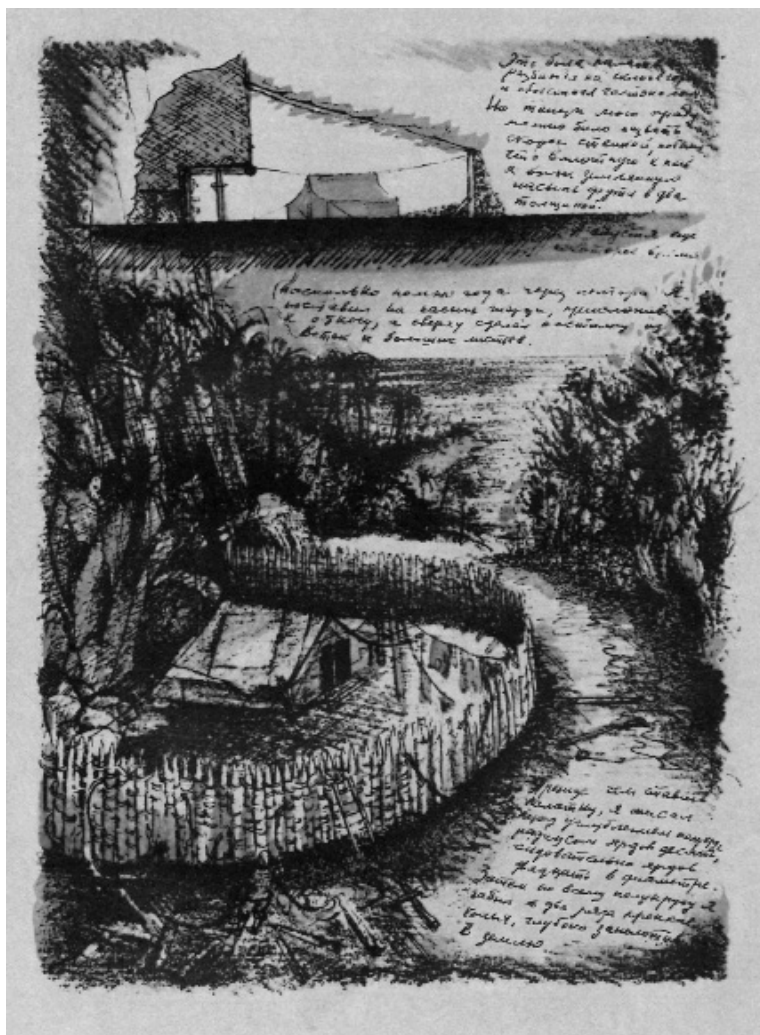 Это была палатка
разбитая на склоне горы
и обнесённая частоколом.
Но теперь мою ограду
можно было назвать
скорее стеной, потому
что вплотную к ней
я вывел земляную
насыпь фута в два
толщиной.
спустя еще
некоторое время
(насколько помню года через полтора) я
поставил на насыпь жерди, прислонив
к откосу, а сверху сделал настилку из
веток и больших листьев.
Прежде чем ставить
палатку, я описал
перед углублением полукруг,
радиусом ярдов десять,
следовательно ярдов
двадцать в диаметре.
Затем по всему полукругу я
набил в два ряда крепкие
колья, глубоко заколотив
в землю.